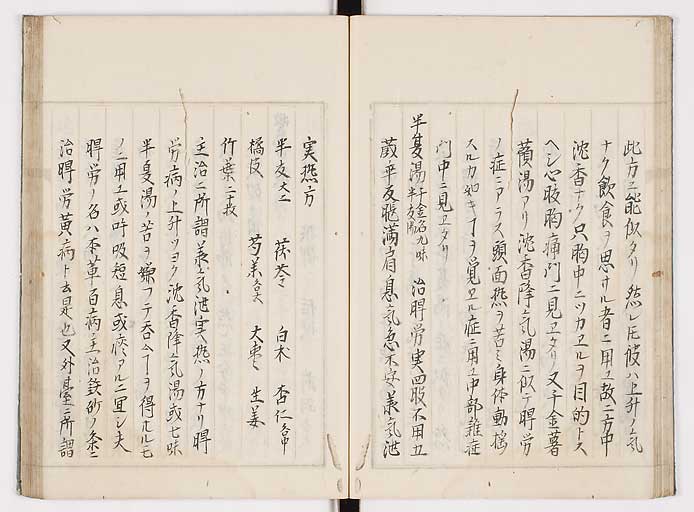 此方ニ能似タリ然レ𪜈彼ハ上升ノ気
ナク飲食ヲ思サル者ニ用ユ故ニ方中
沈香ナク只胸中ニツカヱルヲ目的トス
ヘシ心腹胸痛門ニ見ヱタリ又千金蓍
蕷湯アリ沈香降気湯ニ似テ脾労
ノ症ニアラス頭面熱ヲ苦ミ身体動揺
スルカ如キヿヲ覚ヱル症ニ用ユ中部雑症
門中ニ見ヱタリ
半夏湯 千金名九味半夏湯 治脾労実四肢不用五
蔵乖反脹満肩息気急不安兼気泄
実熱方
半夏 大二 茯苓 白朮 杏仁 各中
橘皮 芍薬 各大 大棗 生姜
竹葉二十枚
主治ニ所謂兼気泄実熱ノ方ナリ脾
労病ノ上升ツヨク沈香降気湯或七味
半夏湯ノ苦ヲ嫌フテ呑ムヿヲ得サルモ
ノニ用ユ或叶吸短息或痰アルニ宜シ夫
脾労ノ名ハ本草百病主治鉄砂ノ条ニ
治脾労黄病ト云是也又外臺ニ所謂